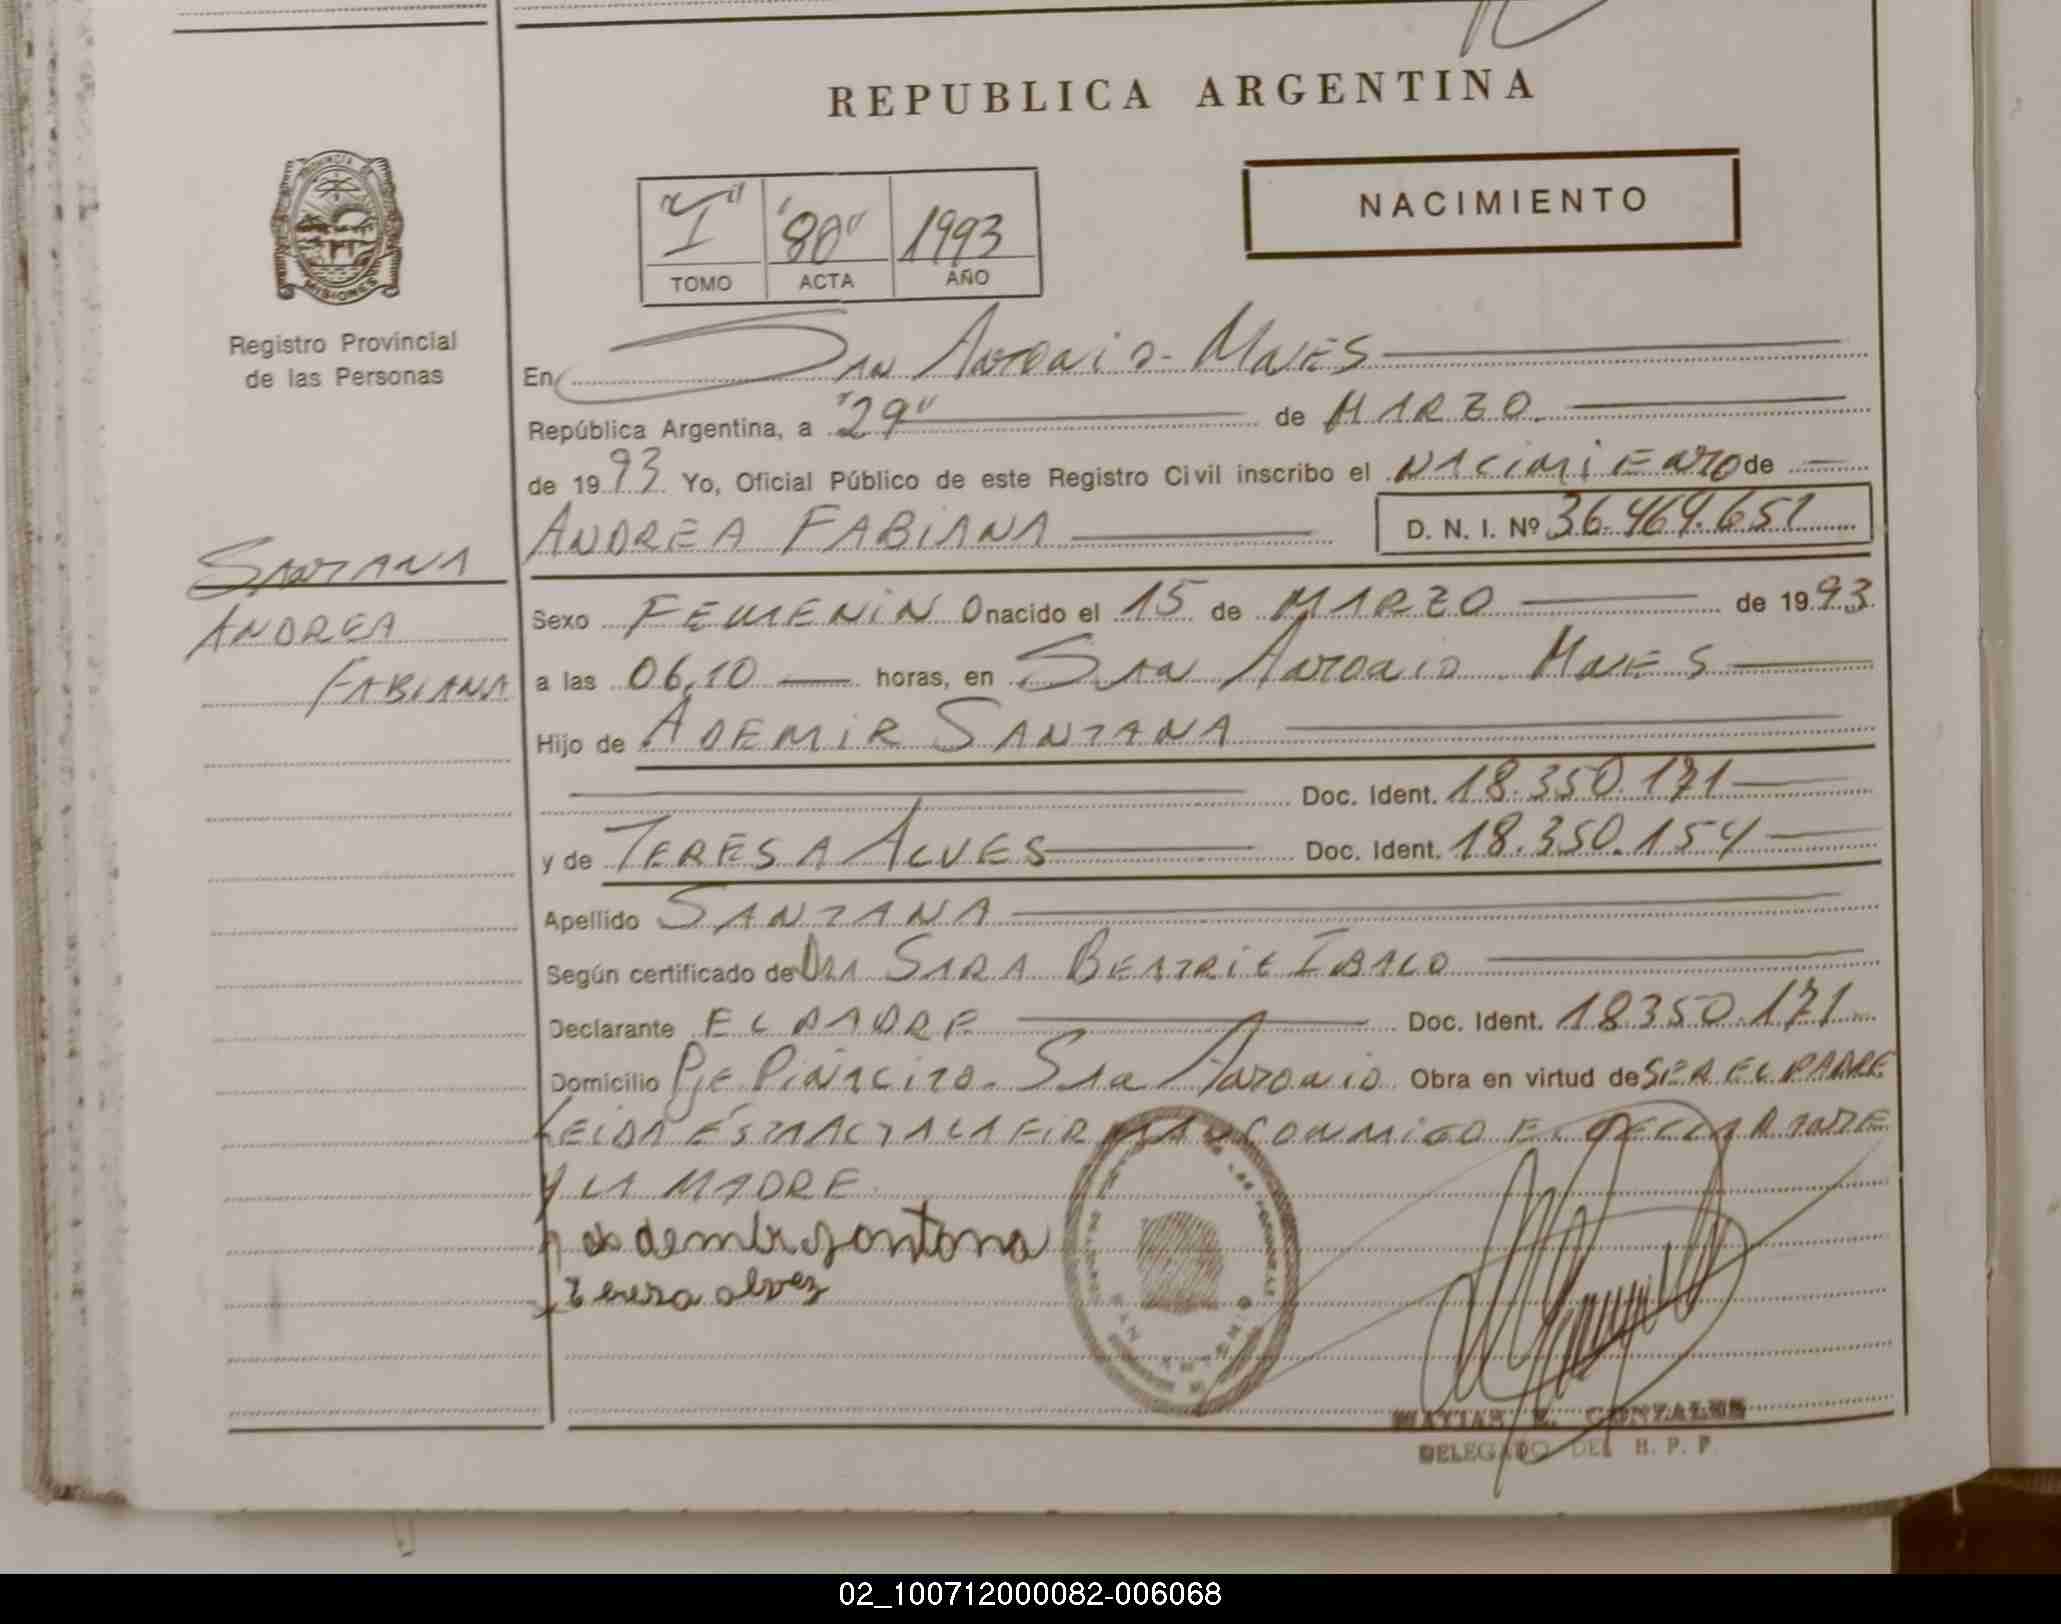 REPUBLICA ARGENTINA
PROVINCIA DE MISIONES
Registro Provincial
de las Personas
NACIMIENTO
"I" "80" 1993
TOMO ACTA AÑO
En San Antonio - Mnes
República Argentina, a "29" de MARZO
de 1993 Yo, Oficial Público de este Registro Civil inscribo el NACIMIENTO de
ANDREA FABIANA D. N. I. Nº 36.469.651
SANTANA
ANDREA
FABIANA
Sexo FEMENINO nacido el 15 de MARZO de 1993
a las 06,10 horas, en San Antonio Mnes
Hijo de ADEMIR SANTANA
Doc. Ident. 18.350.171
y de TERESA ALVES Doc. Ident. 18.350.154
Apellido SANTANA
Según certificado de Dra SARA BEATRIZ
Declarante EL PADRE Doc. Ident. 18350.171
Domicilio Pje Piñalito - San Antonio Obra en virtud de SER EL PADRE
LEIDA ESTA ACTA LA FIRMAN CONMIGO EL DECLARANTE
Y LA MADRE
ademir santana
teresa alvez
MATIAS E. GONZALES
DELEGADO DEL R. P. P.
02_100712000082-006068